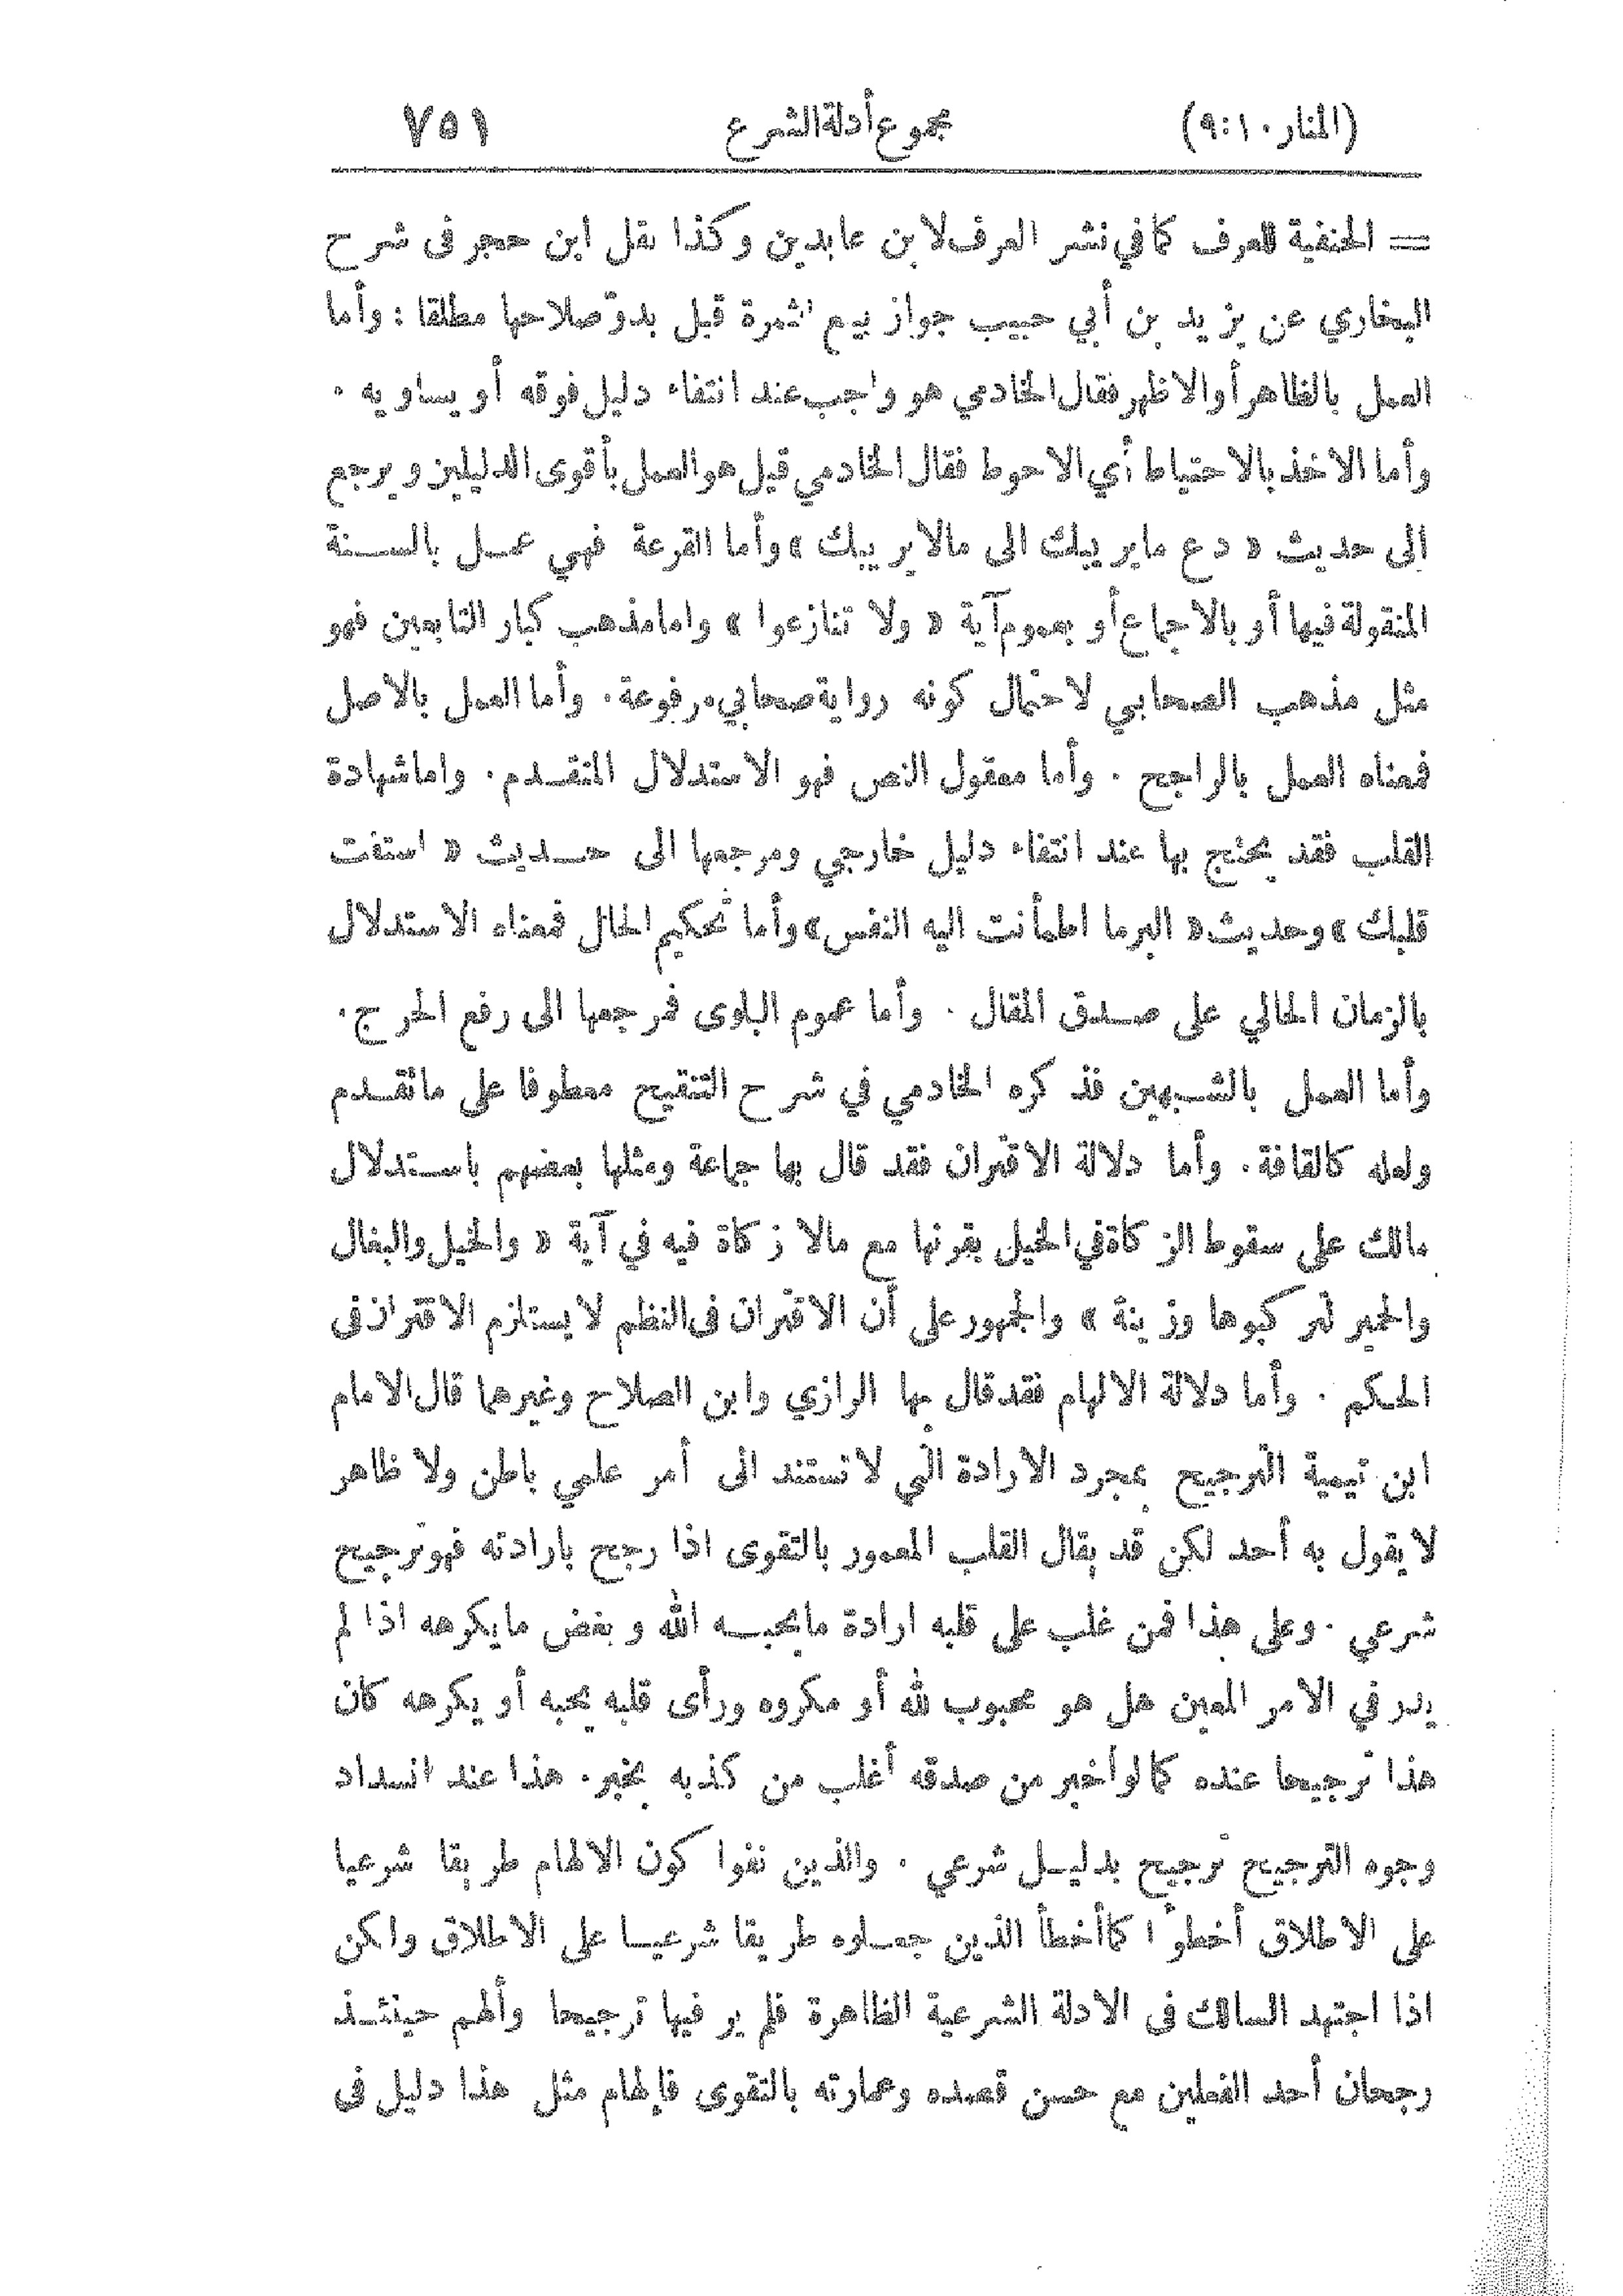 (المنار ١٠:٩) مجموع أدلة الشرع ٧٥١
= الحنفية للعرف كما في نشر العرف لابن عابدين وكذا نقل ابن حجر فى شرح
البخاري عن يزيد بن أبي حبيب جواز بيع الثمرة قبل بدوّ صلاحها مطلقا : وأما
العمل بالظاهر أو الاظهر فقال الخادمي هو واجب عند انتفاء دليل فوقه أو يساويه .
وأما الاخذ بالاحتياط أي الاحوط فقال الخادمي قيل هو العمل بأقوى الدليلين ويرجع
الى حديث « دع ما يريبك الى مالا يريبك » وأما القرعة فهي عمل بالسنة
المنقولة فيها أو بالاجماع أو بعموم آية « ولا تنازعوا » واما مذهب كبار التابعين فهو
مثل مذهب الصحابي لاحتمال كونه رواية صحابي مرفوعة . وأما العمل بالاصل
فمعناه العمل بالراجح . وأما معقول النص فهو الاستدلال المتقدم . واما شهادة
القلب فقد يحتج بها عند انتفاء دليل خارجي ومرجعها الى حديث « استفت
قلبك » وحديث « البر ما اطمأنت اليه النفس » وأما تحكيم الحال فمعناه الاستدلال
بالزمان الحالي على صدق المقال . وأما عموم البلوى فمرجعها الى رفع الحرج .
وأما العمل بالشبهين فذكره الخادمي في شرح التنقيح معطوفا على ماتقدم
ولعله كالقافة . وأما دلالة الاقتران فقد قال بها جماعة ومثلها بعضهم باستدلال
مالك على سقوط الزكاة في الخيل بقرنها مع مالا زكاة فيه في آية « والخيل والبغال
والحمير لتركبوها وزينة » والجمهور على أن الاقتران فى النظم لا يستلزم الاقتران فى
الحكم . وأما دلالة الالهام فقد قال بها الرازي وابن الصلاح وغيرهما قال الامام
ابن تيمية الترجيح بمجرد الارادة التي لا تستند الى أمر علمي باطن ولا ظاهر
لا يقول به أحد لكن قد يقال القلب المعمور بالتقوى اذا رجح بارادته فهو ترجيح
شرعي . وعلى هذا فمن غلب على قلبه ارادة مايحبه الله وبغض مايكرهه اذا لم
يدر في الامر المعين هل هو محبوب لله أو مكروه ورأى قلبه يحبه أو يكرهه كان
هذا ترجيحا عنده كما لو أخبر من صدقه أغلب من كذبه بخبر . هذا عند انسداد
وجوه الترجيح ترجيح بدليل شرعي . والذين نفوا كون الالهام طريقا شرعيا
على الاطلاق أخطؤا كما أخطأ الذين جعلوه طريقا شرعيا على الاطلاق ولكن
اذا اجتهد السالك فى الادلة الشرعية الظاهرة فلم ير فيها ترجيحا وألهم حينئذ
رجحان أحد الفعلين مع حسن قصده وعمارته بالتقوى فإلهام مثل هذا دليل فى